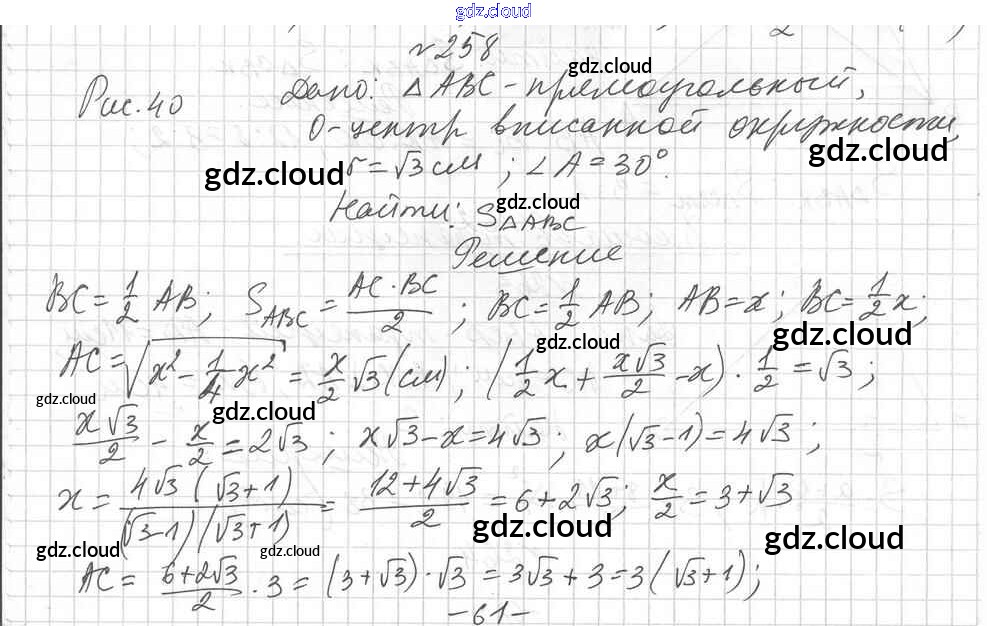 gdz.cloud
№258
gdz.cloud
Рис. 40 Дано: △ABC - прямоугольный,
O - центр вписанной окружности,
gdz.cloud
gdz.cloud r = √3 см ; ∠A = 30°.
gdz.cloud
Найти: S△ABC
Решение
BC = 1/2 AB; S_ABC = AC·BC/2 ; BC = 1/2 AB; AB = x; BC = 1/2 x;
gdz.cloud gdz.cloud
AC = √(x² - 1/4 x²) = x/2 √3 (см) ; (1/2 x + x√3/2 - x) · 1/2 = √3 ;
gdz.cloud gdz.cloud
x√3/2 - x/2 = 2√3 ; x√3 - x = 4√3 ; x(√3 - 1) = 4√3 ;
x = 4√3 (√3 + 1)/(√3 - 1)(√3 + 1) = 12 + 4√3/2 = 6 + 2√3; x/2 = 3 + √3
gdz.cloud gdz.cloud
gdz.cloud gdz.cloud
AC = 6 + 2√3/2 · 3 = (3 + √3) · √3 = 3√3 + 3 = 3(√3 + 1);
- 61 -